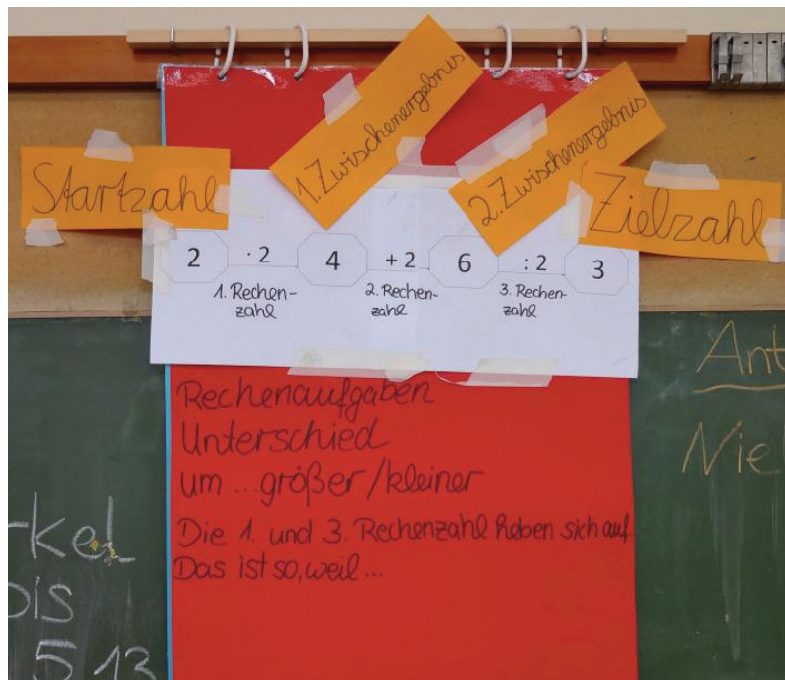 Startzahl
1. Zwischenergebnis
2. Zwischenergebnis
Zielzahl
2 · 2 4 + 2 6 : 2 3
1. Rechen-
zahl
2. Rechen-
zahl
3. Rechen-
zahl
Rechenaufgaben
Unterschied
um ... größer/kleiner
Die 1. und 3. Rechenzahl heben sich auf
Das ist so, weil ...
Ant
Nie
rkel
bis
5 13